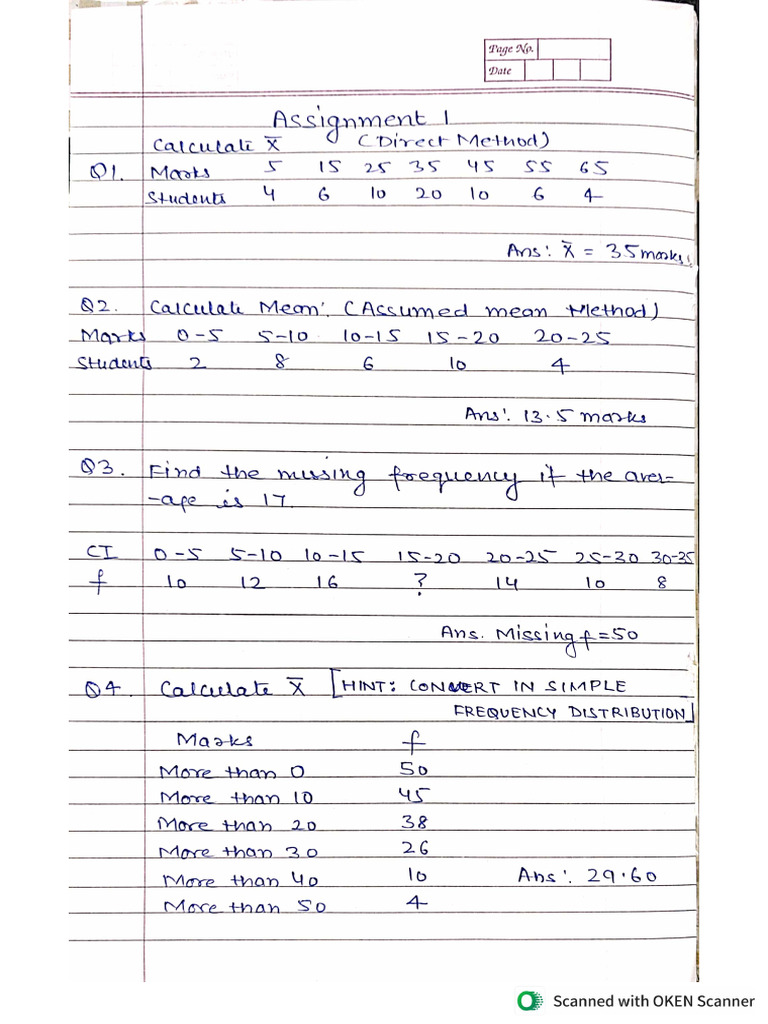 Page No.
Date
Assignment 1
Calculate X̄ (Direct Method)
Q1. Marks 5 15 25 35 45 55 65
Students 4 6 10 20 10 6 4
Ans: X̄ = 35 marks.
Q2. Calculate Mean. (Assumed mean Method)
Marks 0-5 5-10 10-15 15-20 20-25
Students 2 8 6 10 4
Ans: 13.5 marks
Q3. Find the missing frequency if the aver-
-age is 17.
CI 0-5 5-10 10-15 15-20 20-25 25-30 30-35
f 10 12 16 ? 14 10 8
Ans. Missing f=50
Q4. Calculate X̄ [HINT: CONVERT IN SIMPLE
FREQUENCY DISTRIBUTION]
Marks f
More than 0 50
More than 10 45
More than 20 38
More than 30 26
More than 40 10 Ans: 29.60
More than 50 4
Scanned with OKEN Scanner